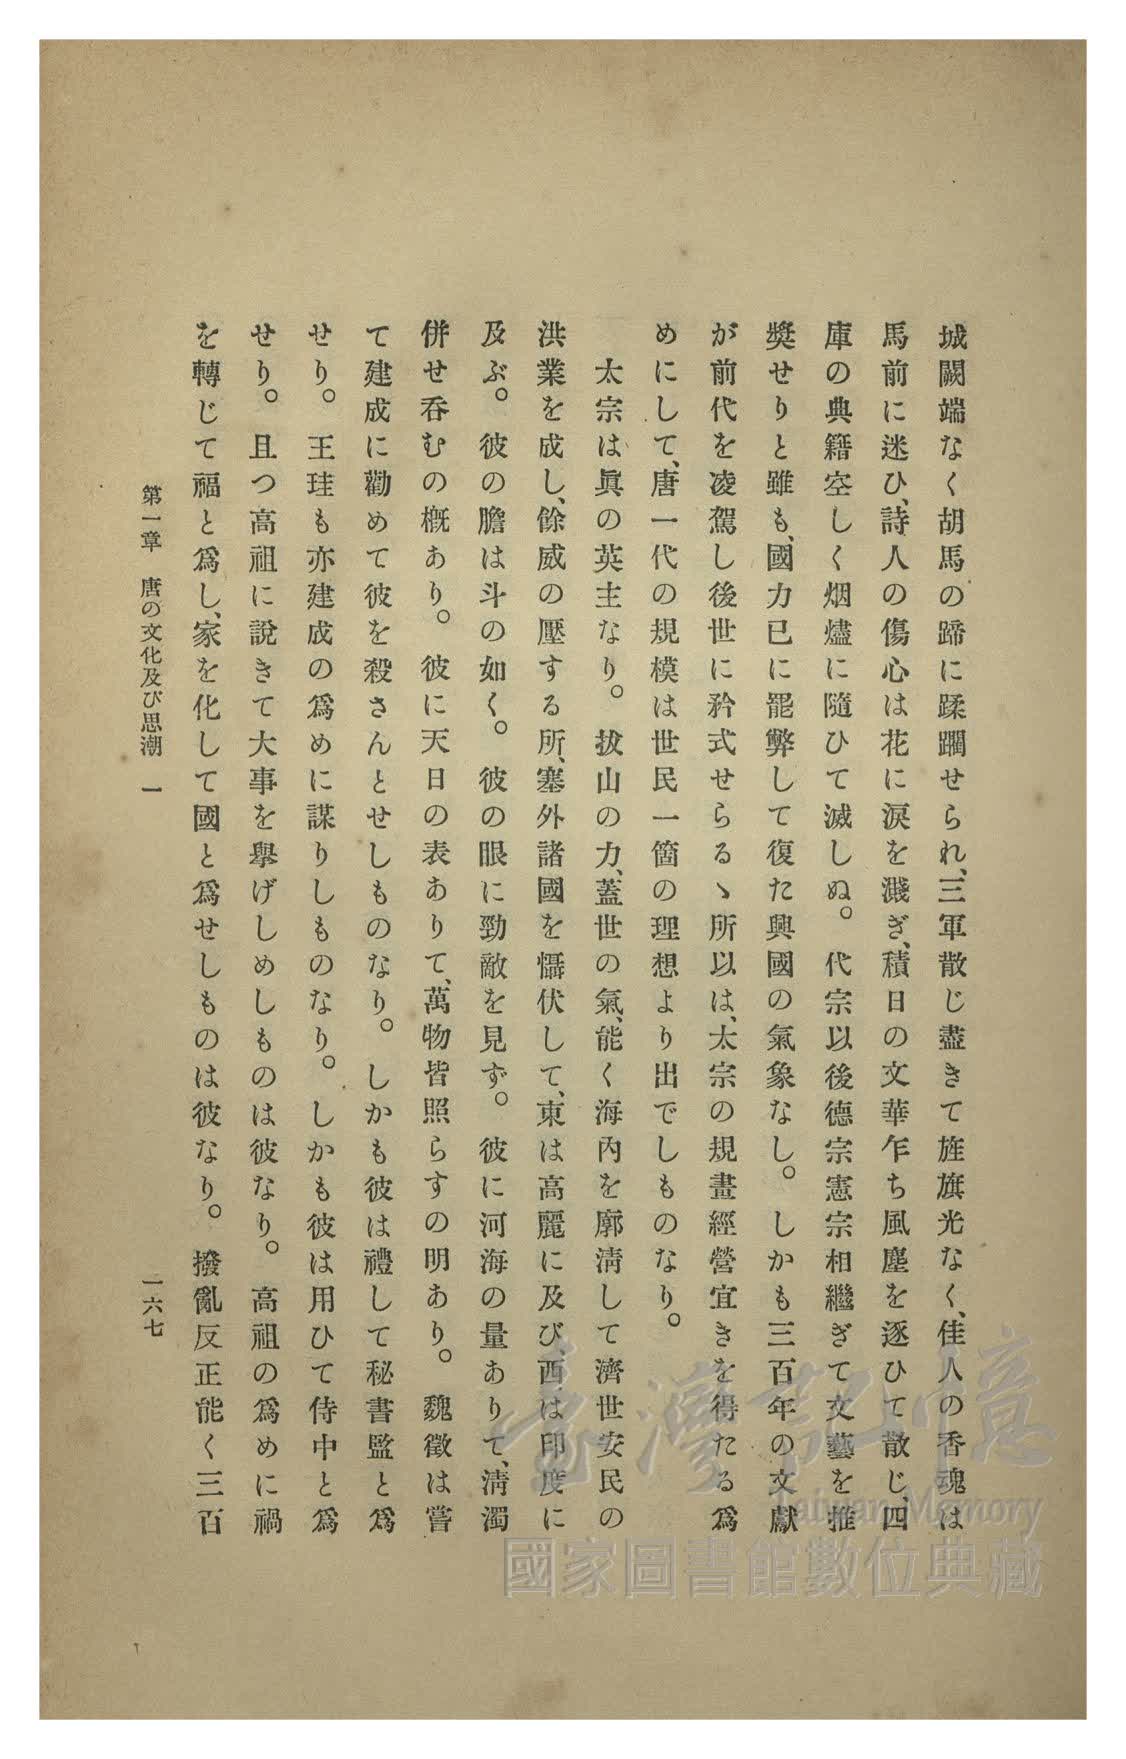 城闕端なく胡馬の蹄に蹂躙せられ、三軍散じ盡きて旌旗光なく、佳人の香魂は
馬前に迷ひ、詩人の傷心は花に淚を濺ぎ、積日の文華乍ち風塵を逐ひて散じ、四
庫の典籍空しく烟燼に隨ひて滅しぬ。代宗以後德宗憲宗相繼ぎて文藝を推
奬せりと雖も、國力已に罷弊して復た興國の氣象なし。しかも三百年の文獻
が前代を凌駕し後世に矜式せらるゝ所以は、太宗の規畫經營宜きを得たる爲
めにして、唐一代の規模は世民一箇の理想より出でしものなり。
太宗は眞の英主なり。拔山の力、蓋世の氣、能く海內を廓淸して濟世安民の
洪業を成し、餘威の壓する所、塞外諸國を懾伏して、東は高麗に及び、西は印度に
及ぶ。彼の膽は斗の如く。彼の眼に勁敵を見ず。彼に河海の量ありて、淸濁
併せ呑むの槪あり。彼に天日の表ありて、萬物皆照らすの明あり。魏徵は嘗
て建成に勸めて彼を殺さんとせしものなり。しかも彼は禮して秘書監と爲
せり。王珪も亦建成の爲めに謀りしものなり。しかも彼は用ひて侍中と爲
せり。且つ高祖に說きて大事を擧げしめしものは彼なり。高祖の爲めに禍
を轉じて福と爲し、家を化して國と爲せしものは彼なり。撥亂反正能く三百
第一章　唐の文化及び思潮　一
一六七
臺灣記憶
Taiwan Memory
國家圖書館數位典藏